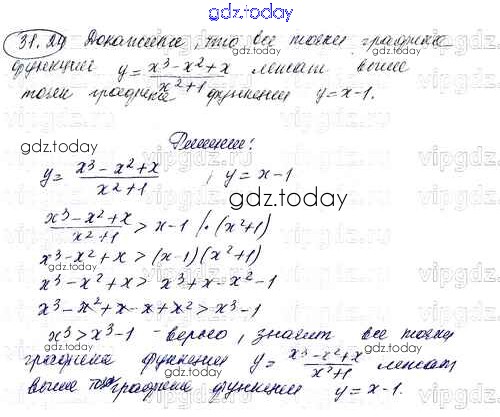 gdz.today
31.24 Докажите, что все точки графика
функции y = \frac{x³ - x² + x}{x² + 1} лежат выше
точки графика функции y = x - 1.
Решение:
gdz.today
y = \frac{x³ - x² + x}{x² + 1} ; y = x - 1
gdz.today
\frac{x³ - x² + x}{x² + 1} > x - 1 | · (x² + 1)
x³ - x² + x > (x - 1)(x² + 1)
x³ - x² + x > x³ + x - x² - 1
x³ - x² + x - x + x² > x³ - 1
x³ > x³ - 1 - верно, значит все точки
графика функции y = \frac{x³ - x² + x}{x² + 1} лежат
выше точки графика функции y = x - 1.